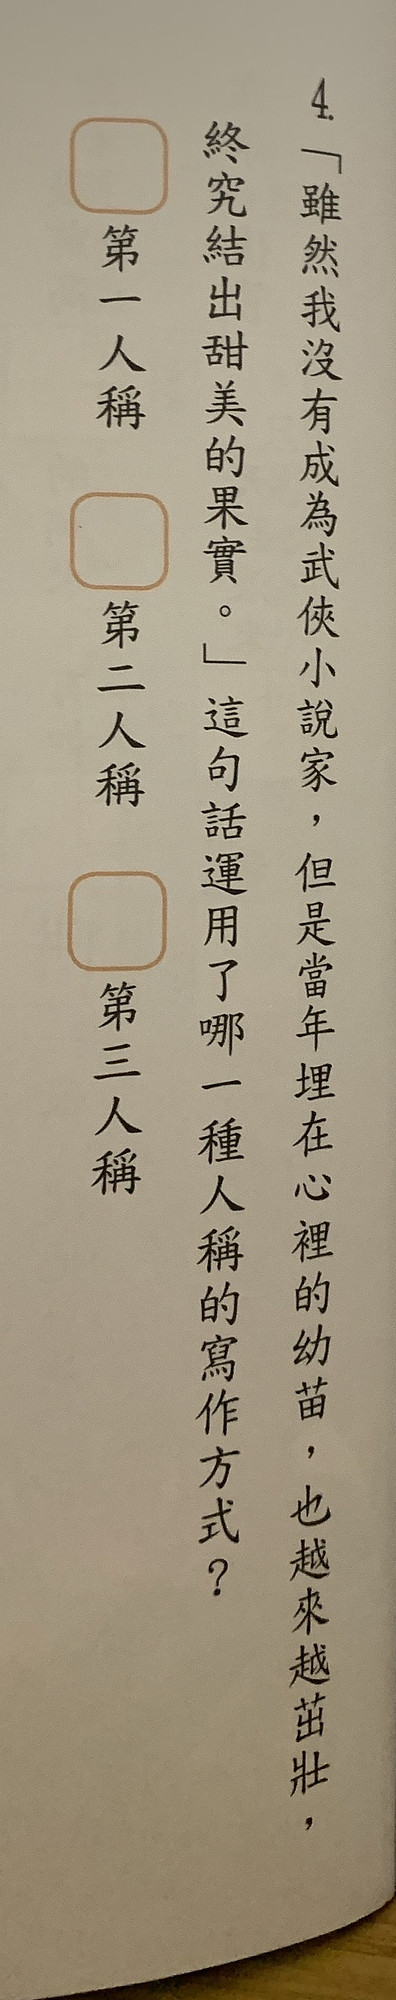 4.「雖然我沒有成為武俠小說家，但是當年埋在心裡的幼苗，也越來越茁壯，
終究結出甜美的果實。」這句話運用了哪一種人稱的寫作方式？
第一人稱 第二人稱 第三人稱